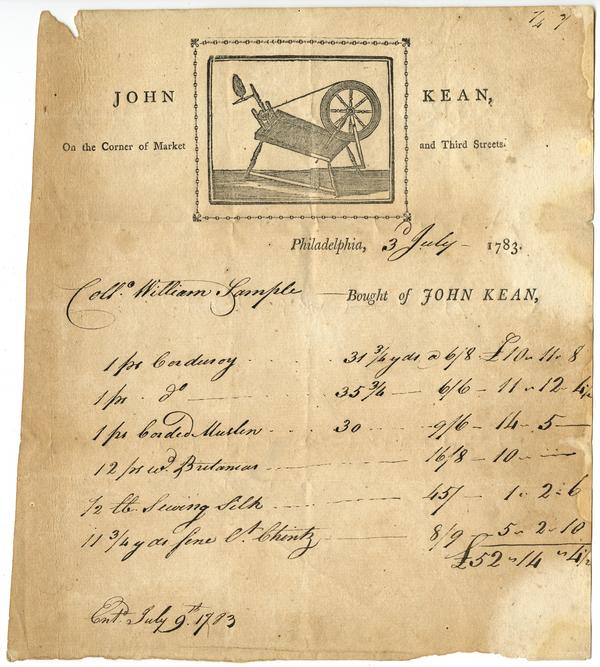 JOHN KEAN,
On the Corner of Market and Third Streets.
Philadelphia, 3d July - 1783.
Collo. William Sample — Bought of JOHN KEAN,
1 ps Corduroy 31 3/4 yds @ 6/8 £10 " 11 " 8
1 ps do — 35 3/4 — 6/6 - 11 - 12 - 4 1/2
1 ps Corded Muslin 30 — 9/6 - 14 - 5 —
12 ps wd. Britanias 16/8 - 10 - —
1/2 lb. Sewing Silk 45/ - 1 " 2 " 6
11 3/4 yds fine Ct. Chintz 8/9 - 5 - 2 - 10
£52 " 14 " 4 1/2
Entd July 9th. 1783